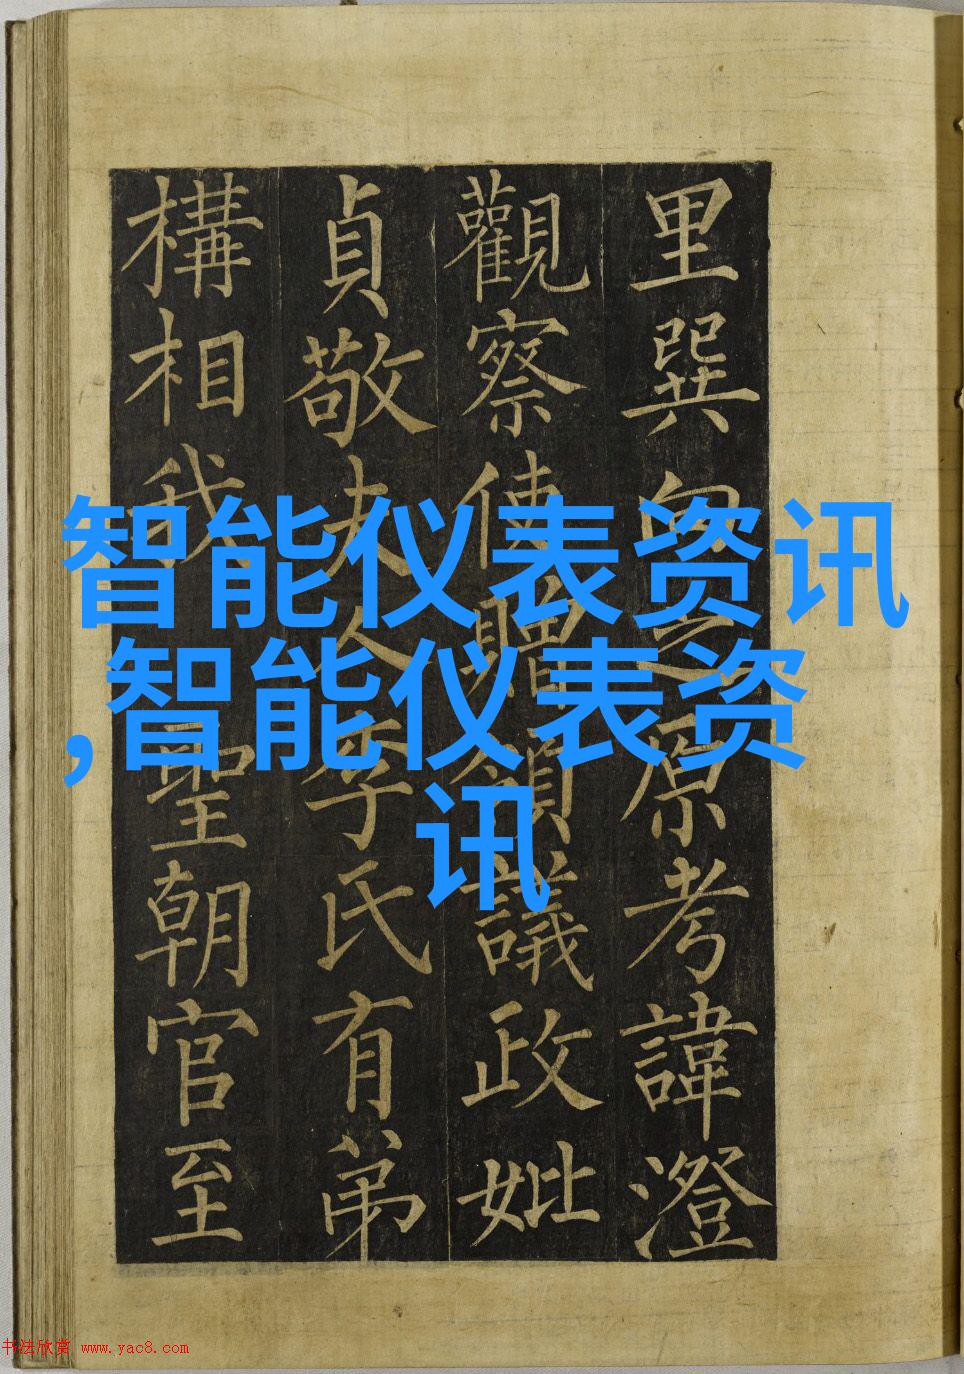 里巽向之原考諱澄
觀察使贈領議政妣
貞敬夫人李氏有弟
構相我 聖朝官至
智能仪表资讯
,智能仪表资
讯
书法欣赏 www.yac8.com